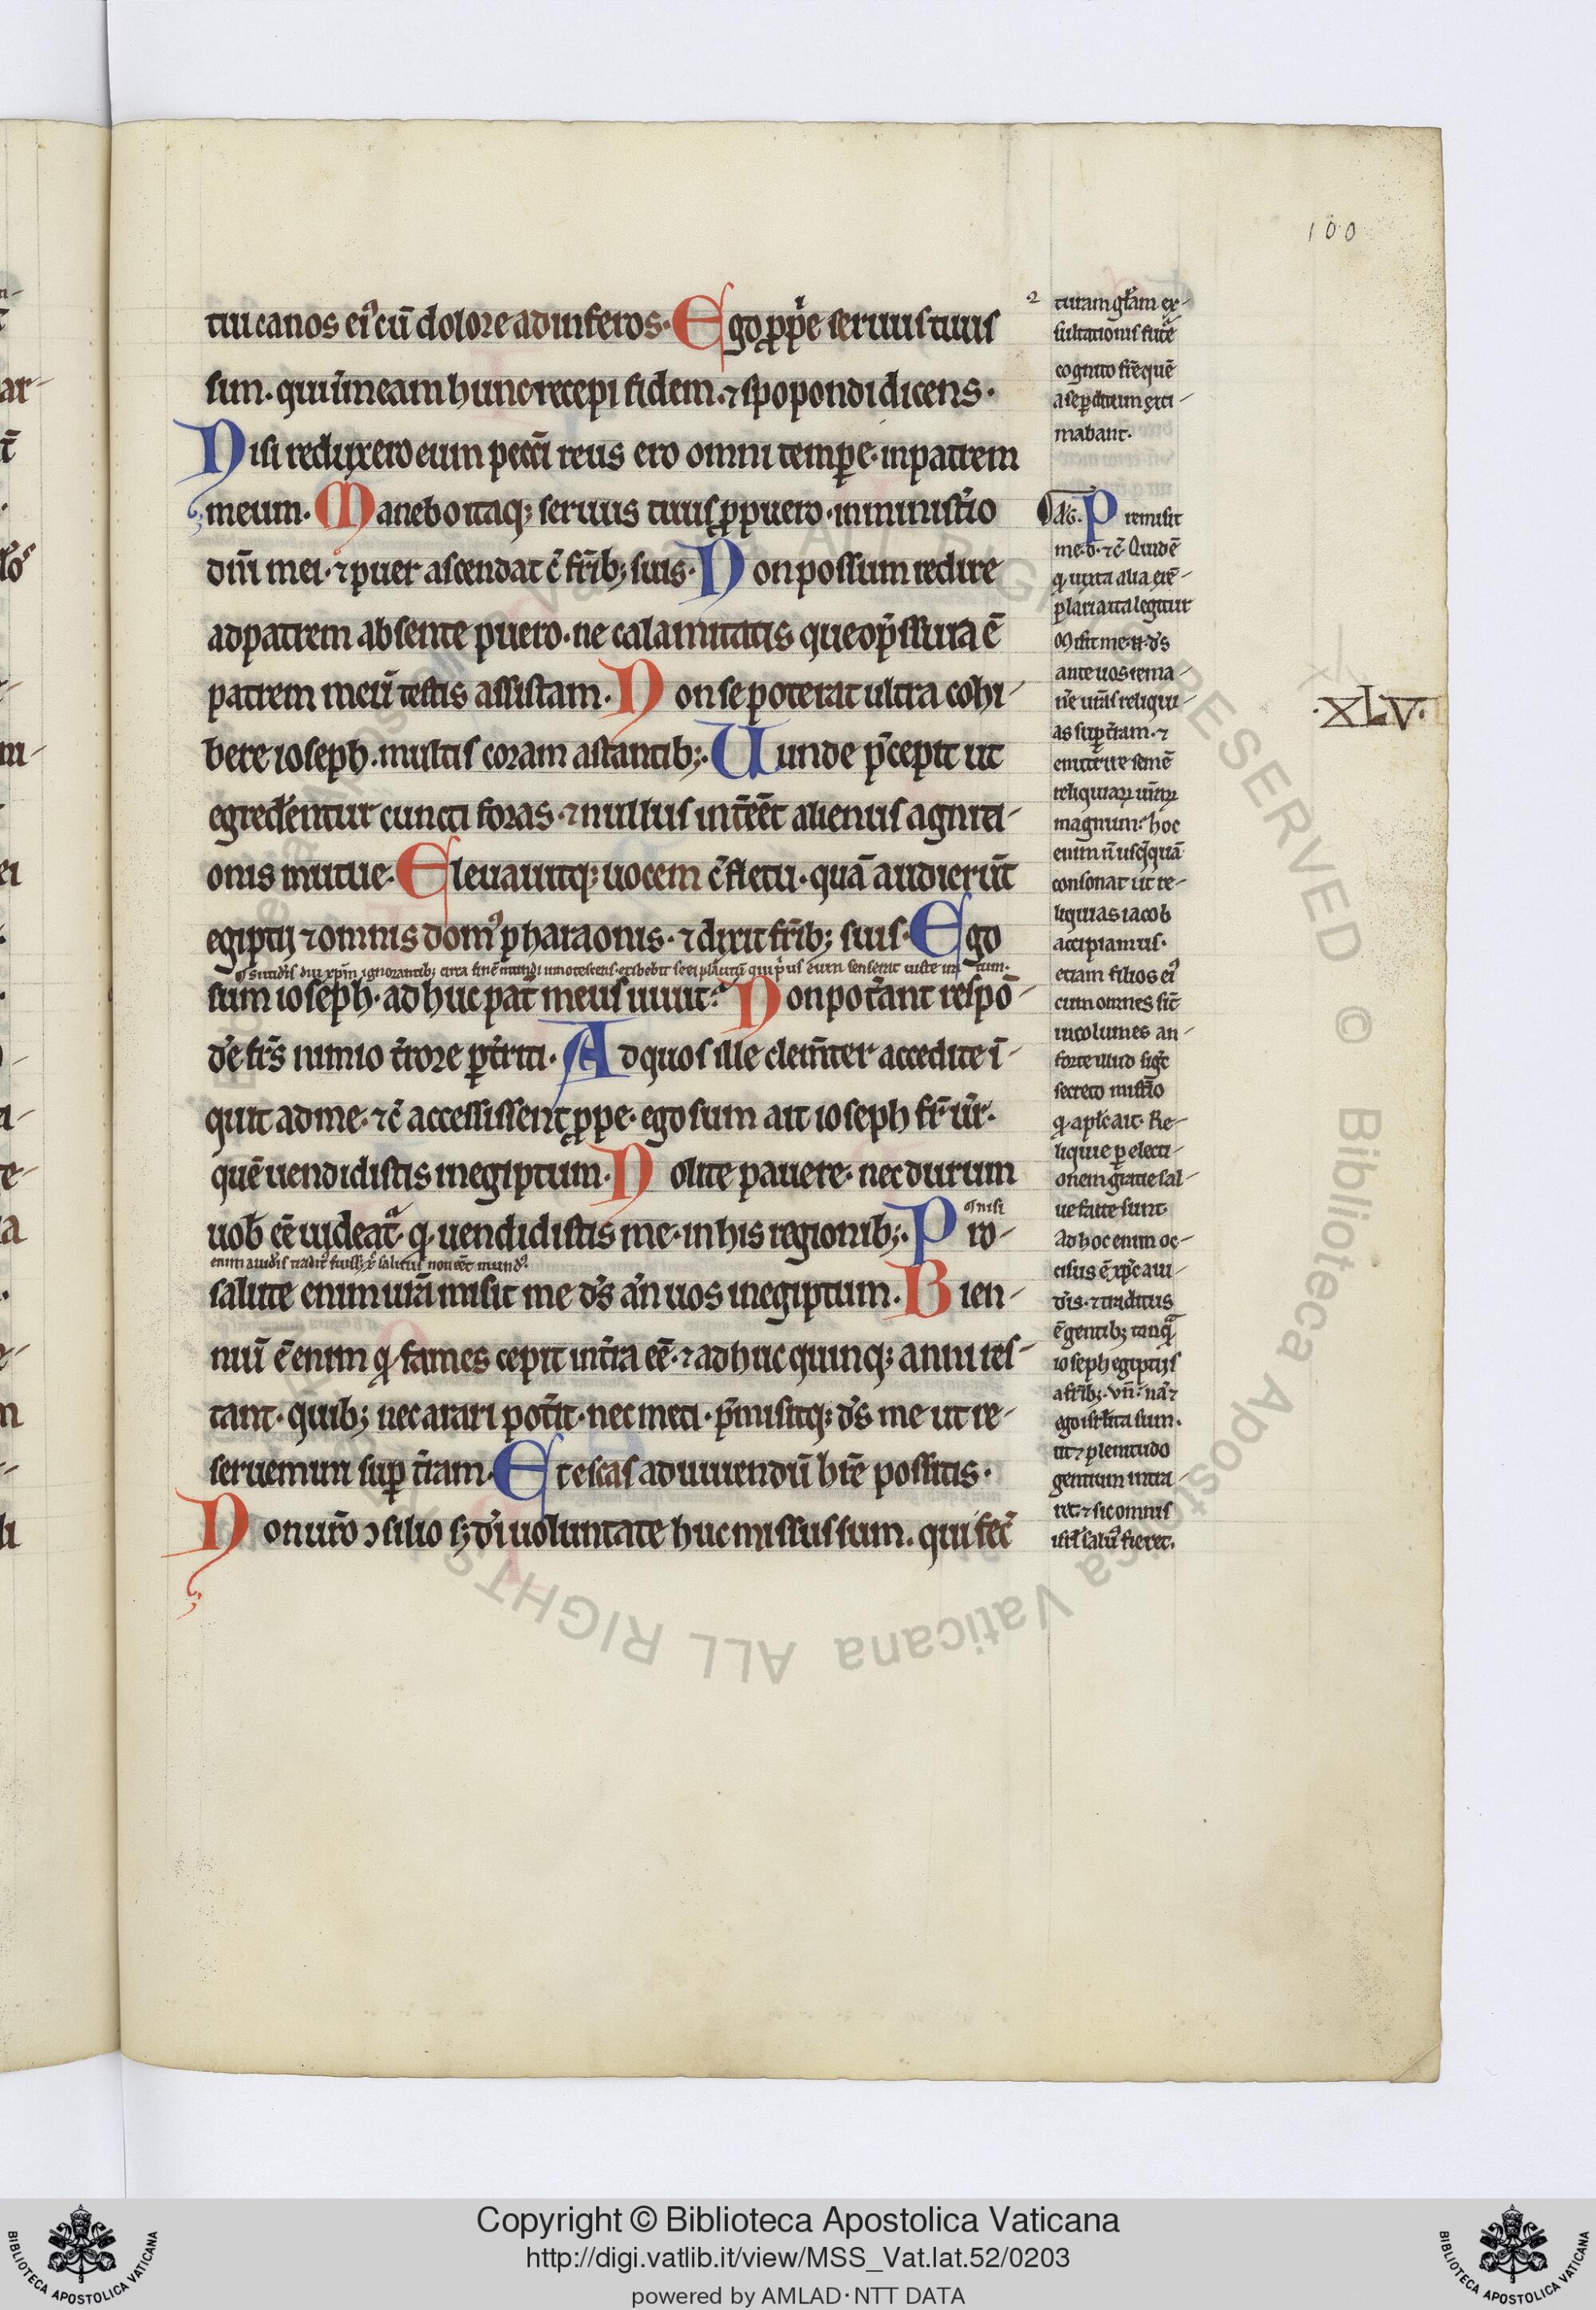 100
tui canos eiꝰ cū dolore ad inferos. Ego ꝓpͥe seruus tuus
sum. qui ī meam hunc recepi fidem. ⁊ spopondi dicens.
Nisi reduxero eum peccͣi reus ero omni temꝑe. in patrem
meum. Manebo itaq; seruus tuus ꝓ puero. in ministͥio
dn̄i mei. ⁊ puer ascendat c̄ fr̄ib; suis. Non possum redire
ad patrem absente puero. ne calamitatis que opp̄ssura ē
patrem meū testis assistam. Non se poterat ultra cohi-
bere ioseph. multis coram astantib;. Uunde p̄cepit ut
egredēntur cuncti foras. ⁊ nullus int̄eēt alienus agniti-
onis mutue. Eleuauitq; uocem c̄ fletu. quā audierūt
egiptij ⁊ omnis domꝰ pharaonis. ⁊ dixit fr̄ib; suis. Ego
sum ioseph. ad huc pat̄ meus uiuit? Non pot̄ant respō-
de fr̄s nimio t̄rore ꝑt̄riti. Ad quos ille clem̄ter accedite ī-
quit ad me. ⁊ c̄ accessissent ꝓpe. ego sum ait ioseph fr̄ ur̄.
quē uendidistis in egiptum. Nolite pauere. nec durum
uob̄ eē uideat. ꝙ uendidistis me. in his regionib;. Pro-
salute enim ur̄a misit me ds̄ an̄ uos in egiptum. Bien-
niū ē enim ꝙ fames cepit in t̄ra eē. ⁊ ad huc quinq; anni res-
tant. quib; nec arari pot̄it. nec meti. p̄misitq; ds̄ me ut re-
seruemini suꝑ t̄ram. Et escas ad uiuendū hr̄e possitis.
Non ur̄o ↄsilio sꝫ di̅ uoluntate huc missus sum. qui fec̄
turam gl̄am ex-
sultationis fuc̄e
cognito fr̄e quē
a se ꝑditum exti-
mabant.
AG. Premisit
me. d. ⁊c̄ Quidē
ꝙ iuxta alia exē-
plaria ita legitur
Misit me. n. ds̄
ante uos rema-
n̄e ur̄as reliqui-
as suꝑ t̄ram. ⁊
enutrire semē
reliquiaꝝ ur̄aꝝ
magnum. hoc
enim n̄ usq̄quā
consonat ut re-
liquias iacob
accipiamus.
etiam filios eiꝰ
cum omnes sīt
incolumes an-
forte illud sig̅t
secreto mist̄io
ꝙ apl̄s ait. Re-
liquie ꝑ electi-
onem gr̄atie sal-
ue facte sunt.
Ad hoc enim oc-
cisus ē xp̄c a iu-
d̄is. ⁊ traditus
ē gentib; tanq̄
ioseph egiptijs
a fr̄ib;. vn̄. na᷒ ⁊
ego isrl̄ita sum.
ut ⁊ plenitudo
gentium intra-
ret ⁊ sic omnis
isrl̄ saluꝰ fieret.
.XLV.
Copyright © Biblioteca Apostolica Vaticana
http://digi.vatlib.it/view/MSS_Vat.lat.52/0203
powered by AMLAD·NTT DATA
BIBLIOTECA APOSTOLICA VATICANA
BIBLIOTECA APOSTOLICA VATICANA